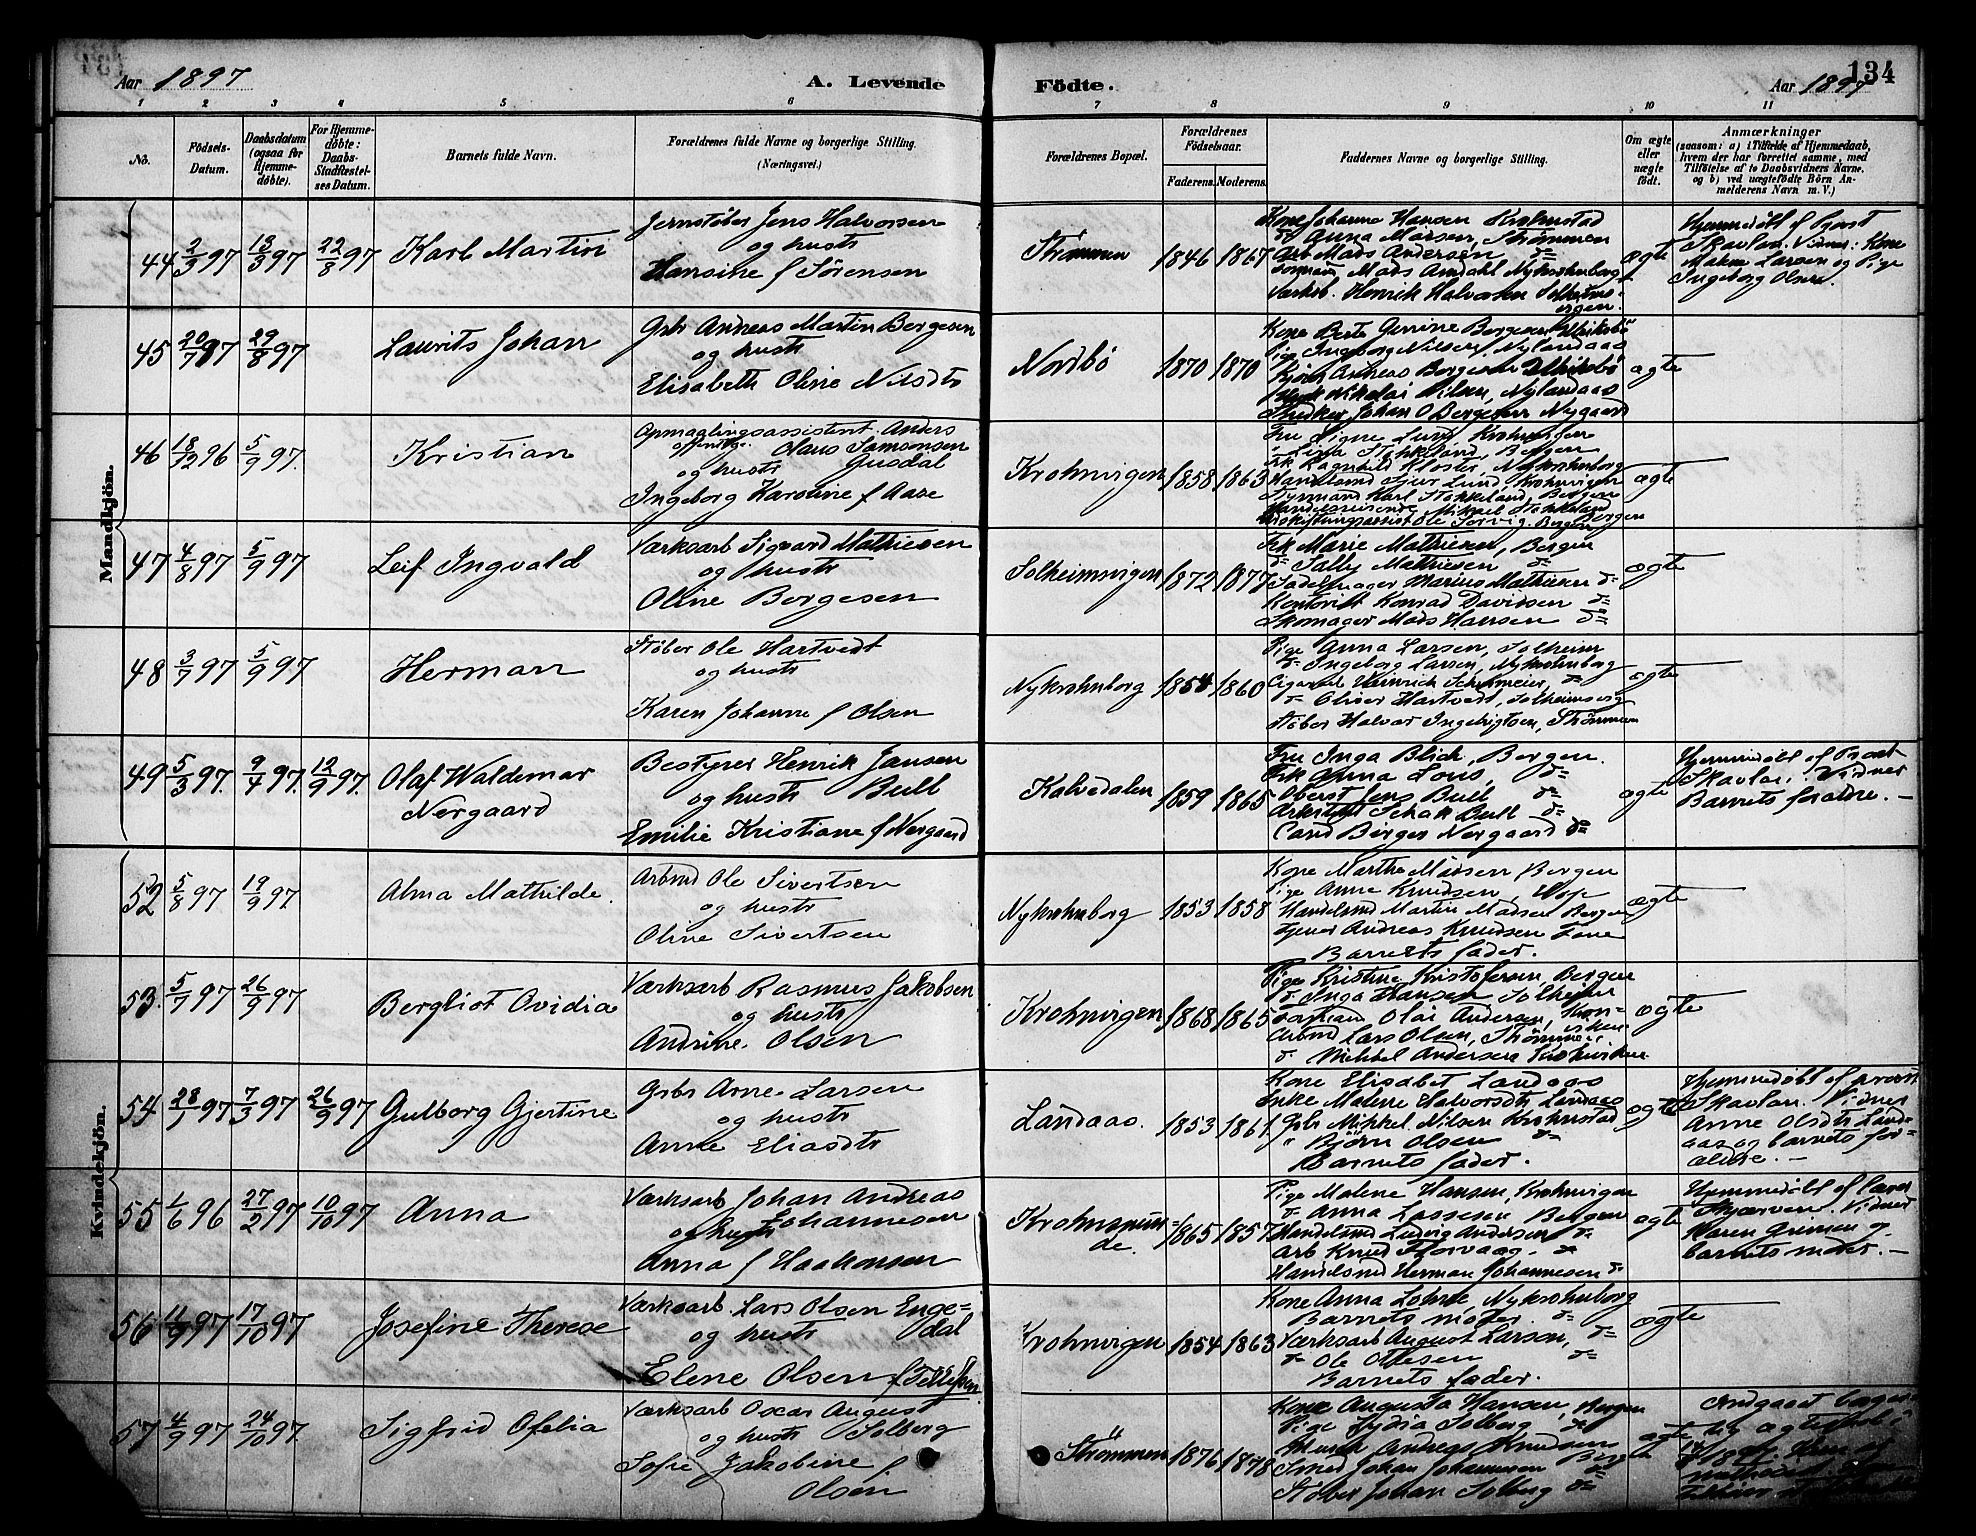 Aar 1897
A. Levende
Födte.
Aar 1897
134
1 2 3 4 5 6 7 8 9 10 11
No.
Födsels-
Datum.
Daabsdatum
(ogsaa for
Hjemme-
døbte).
For Hjemme-
döbte:
Daabs-
Stadfæstel-
ses Datum.
Barnets fulde Navn.
Forældrenes fulde Navne og borgerlige Stilling.
(Næringsvei.)
Forældrenes Bopæl.
Forældrenes
Födselsaar.
Faderens. Moderens.
Faddernes Navne og borgerlige Stilling.
Om ægte
eller
uægte
födt.
Anmærkninger
(saasom: a) i Tilfælde af Hjemmedaab,
hvem der har forrettet samme, med
Tilföielse af to Daabsvidners Navne,
og b) ved uægtefödte Börn An-
melderens Navn m. V.)
Mandkjön.
44 2/3 97 13/3 97 22/8 97 Karl Martin
Jernstøber Jens Halvorsen
og hustr
Hansine f Sörensen
Strømmen 1846 1867
Kone Johanne Hansen Krohnstad
do Anna Marsen, Strømmen
Arb Mads Andersen do
Mads Amdahl Nykrohnborg
Værksb. Henrik Halvorsen Solheims-
vigen.
ægte
Hjemmedöbt af Provst
Skavlan. Vidner: Kone
Malene Larsen og Pige
Ingeborg Olsen.
45 20/7 97 29/8 97 Laurits Johan
Gbr Andreas Martin Bergesen
og hustr
Elisabeth Oline Nilsdtr
Nordbö 1870 1870
Kone Berte Gurine Bergesen
Pige Ingeborg Nilsen, Nylandaas
Andreas Bergesen
Nikolai Nilsen, Nylandaas
Snedker Johan O Bergesen Nygaard
ægte
46 18/12 96 5/9 97. Kristian
Opmaalingsassistent Anders
Olaus Samsonsen
og hustr Gusdal
Ingeborg Karoline f Aase
Krohnvigen 1858 1863
Fru Signe Lund, Krohnvigen
Lina Stokkeland, Bergen
Frk Ragnhild Kloster, Nykrohnborg
Handelsmd Sjur Lund, Krohnvigen
Styrmand Karl Stokkeland, Bergen
Handelsreisende Mikael Stokkeland
Udskiftningsassist Ole Sørvig. Bergen Bergen
ægte
47 4/8 97 5/9 97 Leif Ingvald
Værksarb Sigvard Mathiesen
og hustr
Oline Borgesen
Solheimsvigen 1872 1877
Frk Marie Mathiesen, Bergen
do Sally Mathiesen do
Sadelmager Marius Mathiesen do
Kontorist Konrad Davidsen do
Skomager Mads Hansen do
ægte
48 3/7 97 5/9 97 Herman
Støber Ole Hartvedt
og hustr
Karen Johanne f Olsen
Nykrohnborg 1854 1860
Pige Anna Larsen, Solheim
do Ingeborg Larsen, Nykrohnborg
Heinrich do
do Oliver Hartvedt, Solheimsvig
Støber Halvor Ingebrigtsen, Strømmen
ægte
49 5/3 97. 9/4 97. 12/9 97. Olaf Waldemar
Nergaard
Bestyrer Henrik Jansen
og hustr Bull
Emilie Kristiane f Nergaard
Kalvedalen 1859 1865
Fru Inga Blich, Bergen.
Frk Anna Lous, do
Oberst Jens Bull do
Arkitekt Schak Bull do
Cand Birger Nergaard do
ægte
Hjemmedöbt af Provst
Skavlan. Vidner
Barnets forældre. —
Kvindekjön.
52 5/8 97 19/9 97 Alma Mathilde.
Arbmd Ole Sivertsen
og hustr
Oline Sivertsen
Nykrohnborg 1853 1858
Kone Martha Madsen Bergen
Pige Anne Knudsen,
Handelsmd Martin Madsen Bergen
Tjener Andreas Knudsen Fane
Barnets fader.
ægte
53. 5/7 97 26/9 97 Bergliot Ovidia
Værksarb Rasmus Jakobsen
og hustr
Andrine Olsen
Krohnvigen 1868 1865
Pige Kristine Kristofersen, Bergen
do Inga Hansen Solheim
Olai Andersen,
Arbmd Lars Olsen, Strømmen
do Mikkel Andersen
ægte
54 28/1 97 7/3 97 26/9 97 Gulborg Gjertine
Gbr Arne Larsen
og hustr
Anne Eliasdtr
Landaas. 1853 1861
Kone Elisabet Landaas
Enke Malene Halvorsdtr Landaas
Gbr Mikkel Nilsen Krohnstad
" Björn Olsen do
Barnets fader.
ægte
Hjemmedöbt af provst
Skavlan. Vidner
Anne Olsdtr Land-
aas og barnets for-
ældre. —
55 1/6 96 27/2 97 10/10 97 Anna
Værksarb Johan Andreas
og hustr Johannesen
Anna f Haakonsen
Krohnsmin-
de. 1865 1857
Pige Malene Hansen, Krohnvigen
do Anna Lassesen Bergen
Handelsmd Ludvig Andersen do
Arb Knud Florvaag. do
Handelsmd Herman Johannesen do
ægte
Hjemmedöbt af lærer
Skjærven. Vidner
Karen Grimen og
barnets moder. —
56 11/9 97 17/10 97 Josefine Therese
Værksarb. Lars Olsen Enge-
og hustr dal
Elene Olsen f Tellefsen
Krohnvigen 1854 1863
Kone Anna Lohne, Nykrohnborg
Barnets moder. do
Værksarb August Larsen, do
do Ole Ottesen do
Barnets fader.
ægte
57 4/9 97 24/10 97. Sigfrid Ofelia
Værksarb Oscar August
og hustr Solberg
Sofie Jakobine f
Olsen
Strømmen 1876 1878
Kone Augusta Hansen, Bergen
Pige Lydia Solberg do
Andreas Knudsen
Smed Johan Johannesen Bergen
Støber Johan Solberg do
ægte